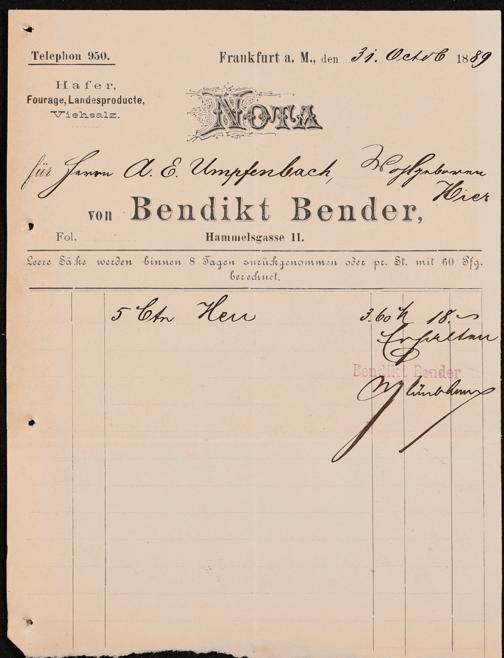 Telephon 950.
Frankfurt a. M., den 31. Octob 1889
Hafer,
Fourage, Landesproducte,
Viehsalz.
NOTA
für Herrn A. E. Umpfenbach, Wohlgeboren
Hier
von Bendikt Bender,
Fol.
Hammelsgasse 11.
Leere Säcke werden binnen 8 Tagen zurückgenommen oder pr. St. mit 60 Pfg.
berechnet.
5 Ctn Heu 3.60 18.-
Erhalten
Bendikt Bender